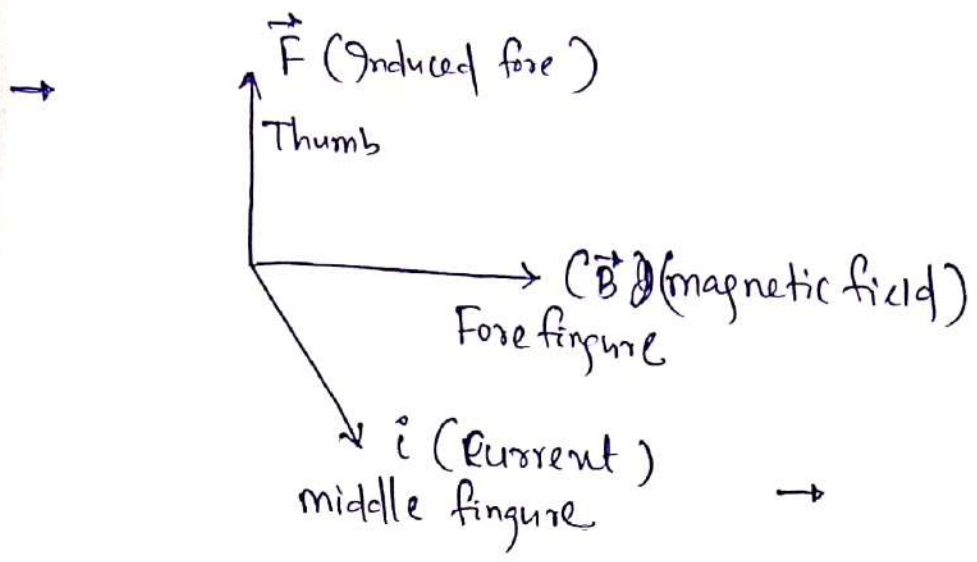 → F⃗ (Induced fore)
Thumb
(B⃗) (magnetic field)
Fore fingure
i (Current)
middle fingure →